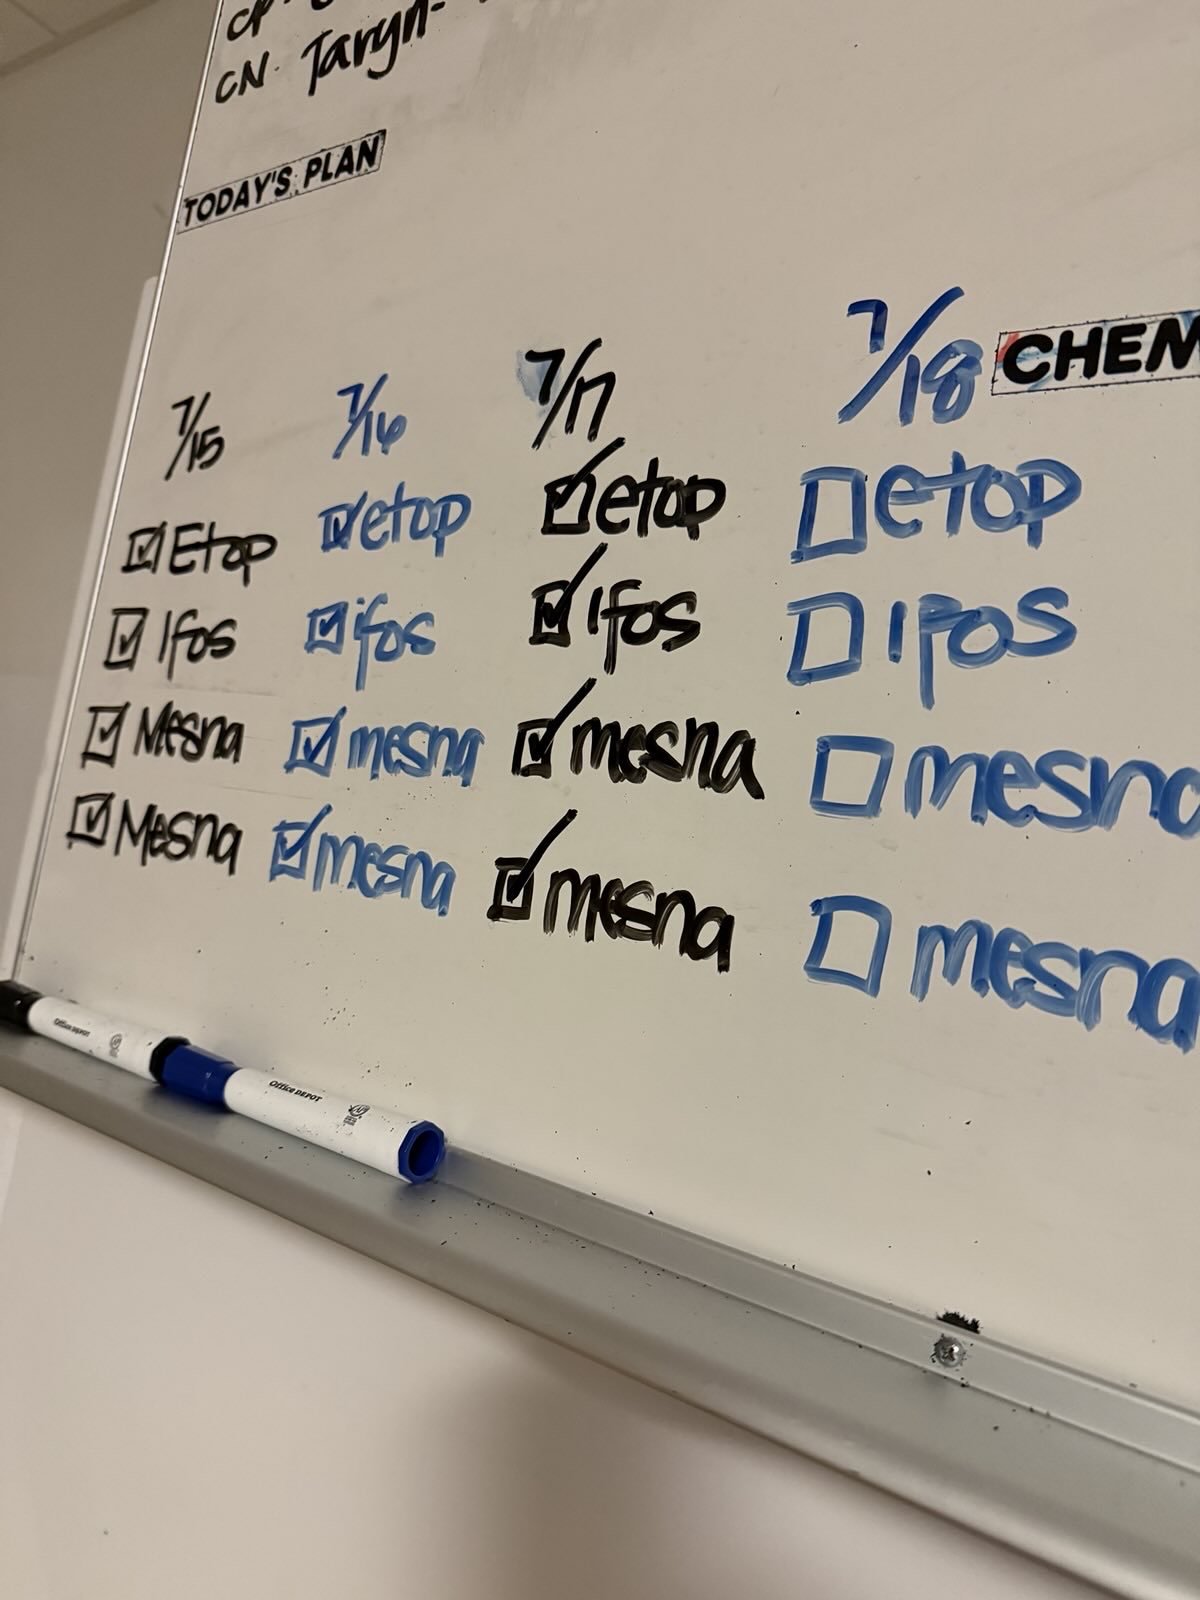 CN. Taryn-
TODAY'S PLAN
7/15
Etop
Ifos
Mesna
Mesna
7/16
etop
ifos
mesna
mesna
7/17
etop
Ifos
mesna
mesna
7/18
etop
ifos
mesna
mesna
CHEM
Office DEPOT
Office DEPOT